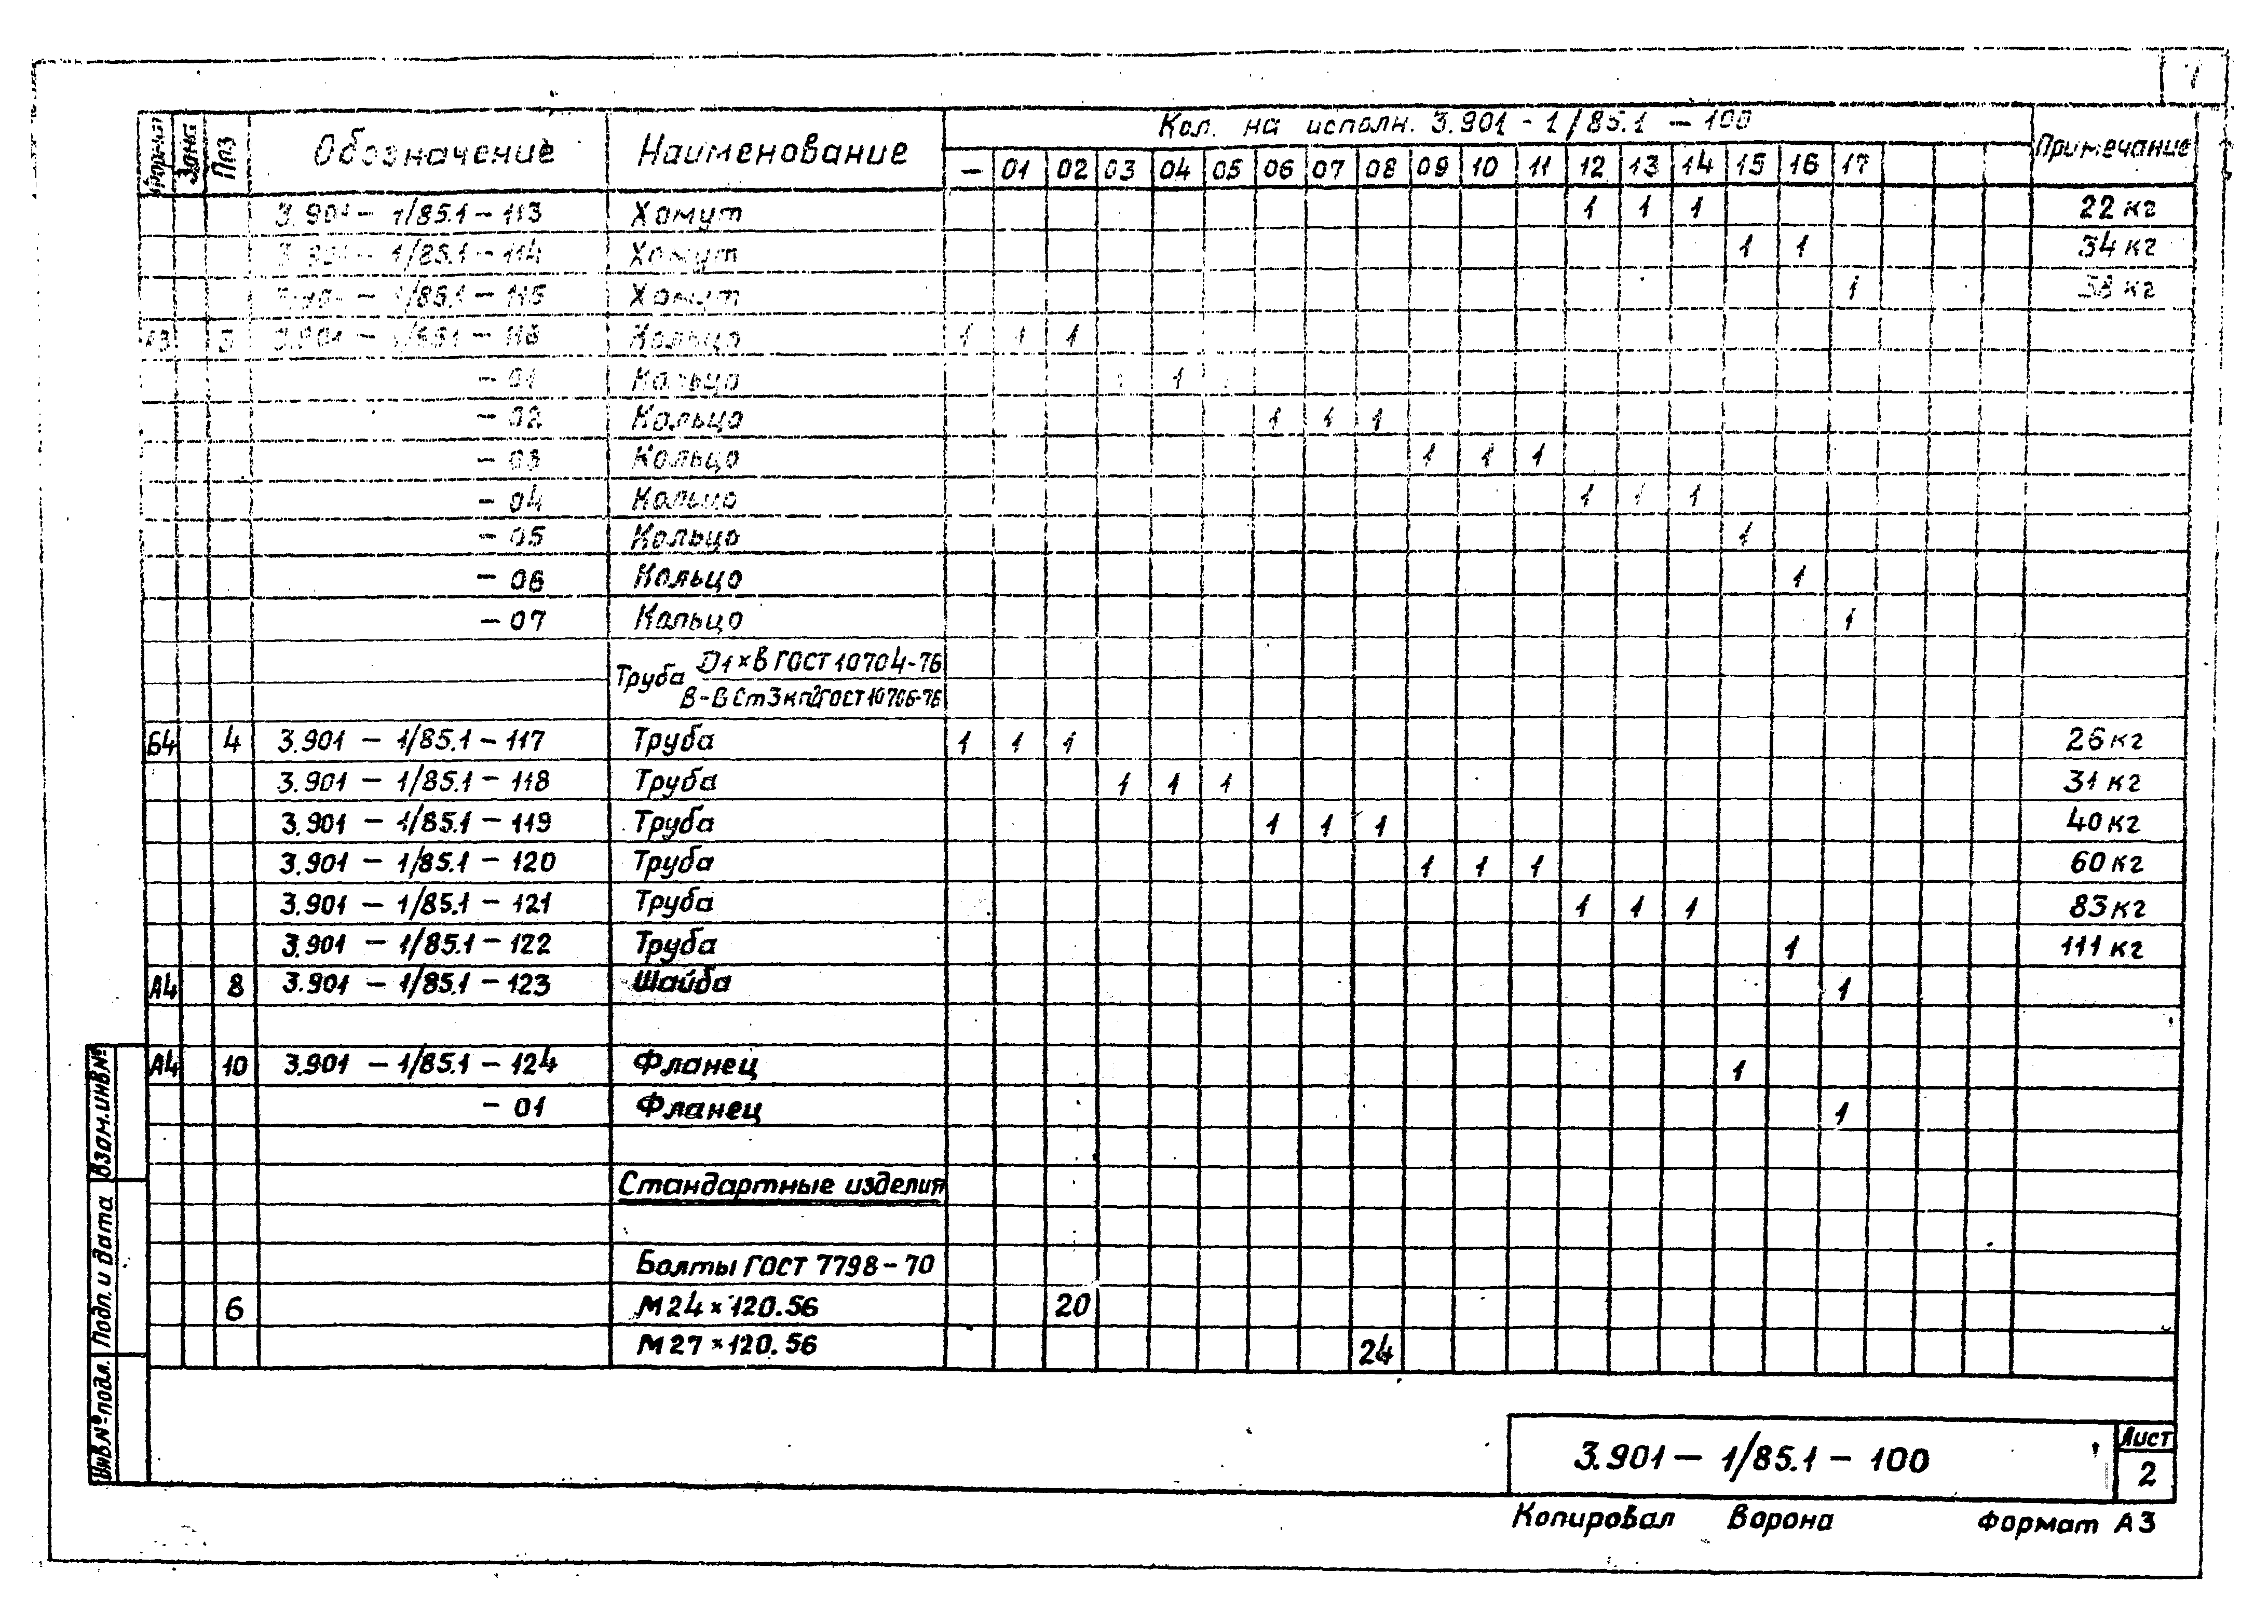 Формат Зона Поз Обозначение Наименование Кол. на исполн. 3.901 - 1/85.1 - 100 Примечание
— 01 02 03 04 05 06 07 08 09 10 11 12 13 14 15 16 17
3.901 - 1/85.1 - 113 Хомут 1 1 1 22 кг
3.901 - 1/85.1 - 114 Хомут 1 1 34 кг
3.901 - 1/85.1 - 115 Хомут 1 38 кг
А3 3 3.901 - 1/85.1 - 116 Кольцо 1 1 1
- 01 Кольцо 1 1 1
- 02 Кольцо 1 1 1
- 03 Кольцо 1 1 1
- 04 Кольцо 1 1 1
- 05 Кольцо 1
- 06 Кольцо 1
- 07 Кольцо 1
Труба D1×В ГОСТ 10704-76
В-В Ст3кп2 ГОСТ 10706-76
Б4 4 3.901 - 1/85.1 - 117 Труба 1 1 1 26 кг
3.901 - 1/85.1 - 118 Труба 1 1 1 31 кг
3.901 - 1/85.1 - 119 Труба 1 1 1 40 кг
3.901 - 1/85.1 - 120 Труба 1 1 1 60 кг
3.901 - 1/85.1 - 121 Труба 1 1 1 83 кг
3.901 - 1/85.1 - 122 Труба 1 111 кг
А4 8 3.901 - 1/85.1 - 123 Шайба 1
А4 10 3.901 - 1/85.1 - 124 Фланец 1
- 01 Фланец 1
Стандартные изделия
Болты ГОСТ 7798-70
6 М24×120.56 20
М27×120.56 24
Взам.инв.№
Подп. и дата
Инв.№ подл.
3.901 - 1/85.1 - 100
Лист
2
Копировал Ворона Формат А3